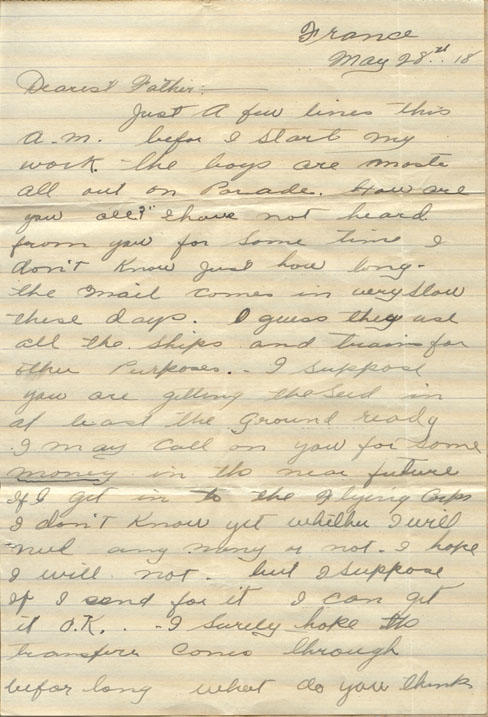 France
May 28th. 18
Dearest Father:
Just A few lines this
a.m. befor I start my
work. the boys are moste
all out on Parade. How are
you all? I have not heard
from you for some time I
don't Know Just how long.
the mail comes in very slow
these days. I guess they use
all the ships and trains for
other Purposes. - I suppose
you are getting the Seed in
at least the Ground ready
I may Call on you for some
money in the near future
If I get in to the Flying Corps
I don't Know yet whether I will
need any money or not. I hope
I will not. but I suppose
If I send for it I can get
it O.K. . - I Surely hope the
transfere comes through
befor long what do you think